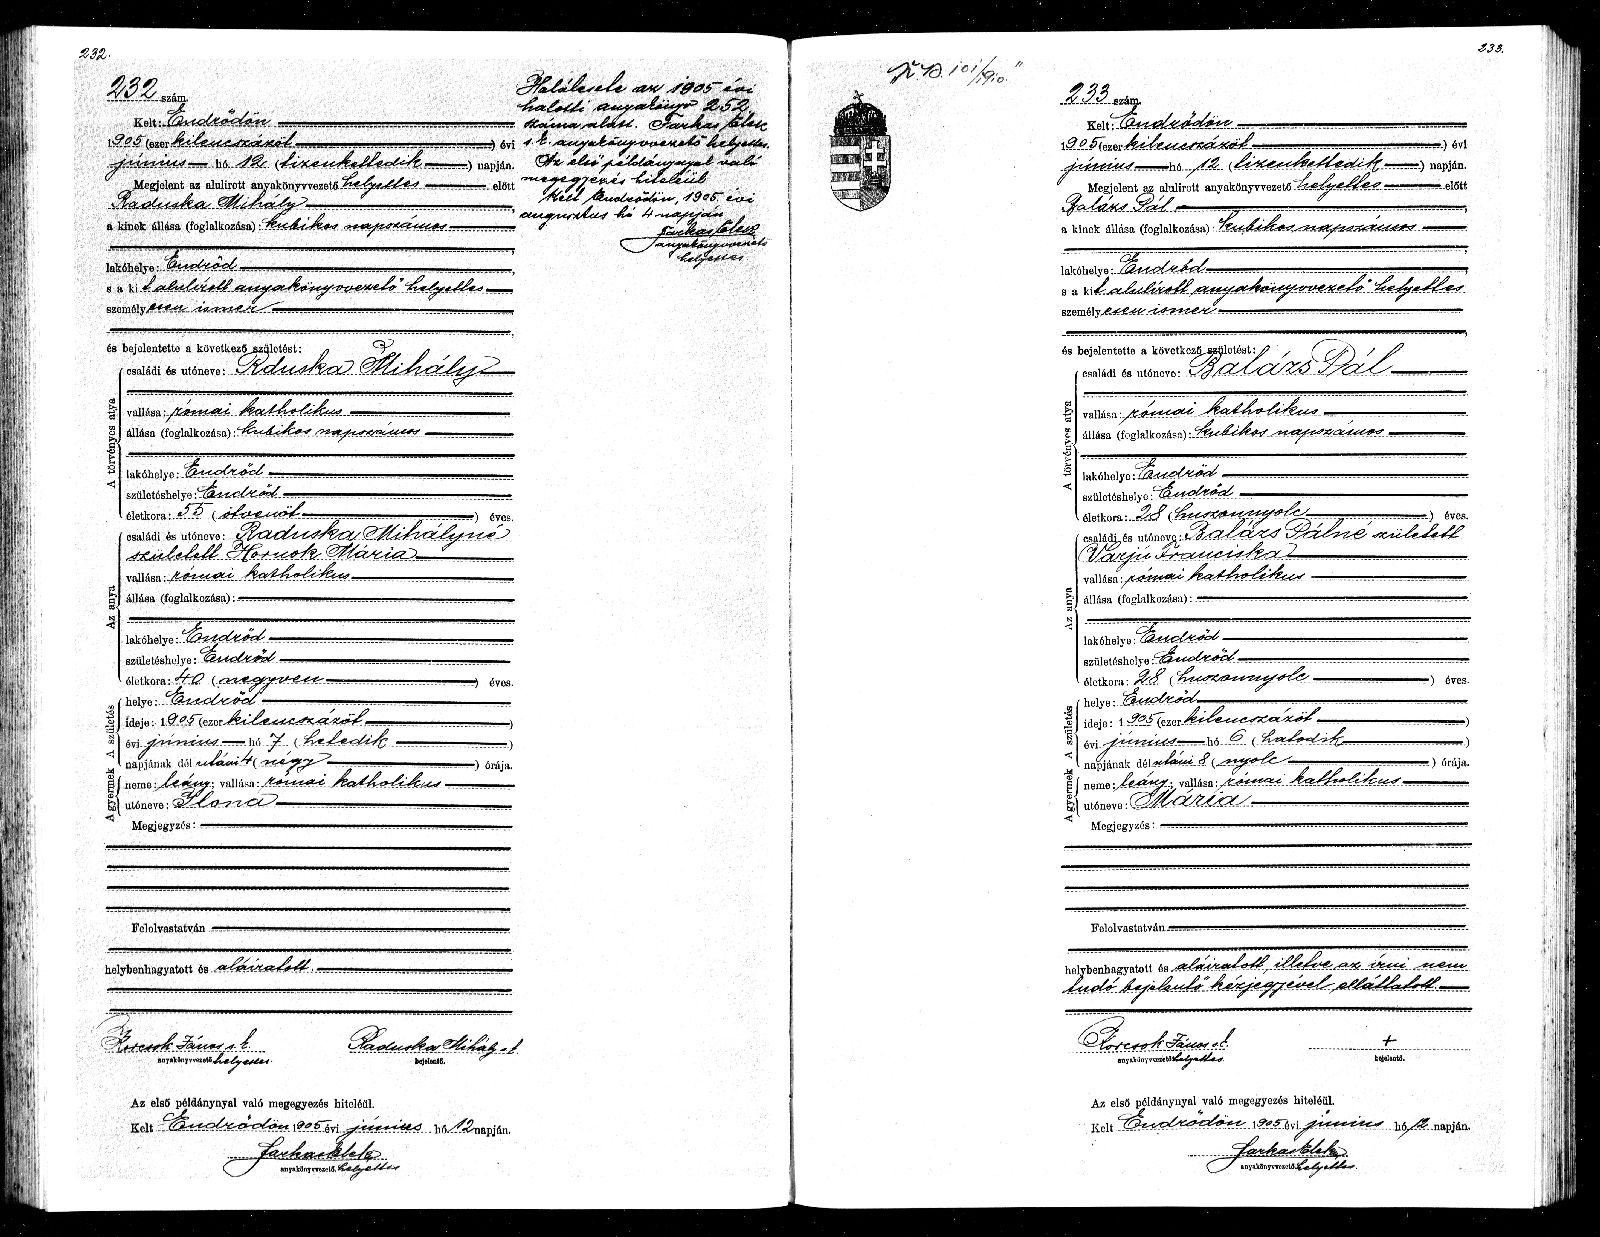 232.
232 szám.
Kelt: Endrődön
1905 (ezer kilencszázöt) évi
június hó 12 (tizenkettedik) napján.
Megjelent az alulirott anyakönyvvezető helyettes előtt
Raduska Mihály
a kinek állása (foglalkozása): kubikos napszámos
lakóhelye: Endrőd
s a kit alulírott anyakönyvvezető helyettes
személyesen ismer
és bejelentette a következő születést:
A törvényes atya
családi és utóneve: Rduska Mihály
vallása: római katholikus
állása (foglalkozása): kubikos napszámos
lakóhelye: Endrőd
születéshelye: Endrőd
életkora: 55 (ötvenöt) éves.
Az anya
családi és utóneve: Raduska Mihályné
született Hornok Mária
vallása: római katholikus
állása (foglalkozása):
lakóhelye: Endrőd
születéshelye: Endrőd
életkora: 40 (negyven) éves.
A születés
helye: Endrőd
ideje: 1905 (ezer kilencszázöt)
évi június hó 7 (hetedik)
napjának dél utáni 4 (négy) órája.
A gyermek
neme: leány; vallása: római katholikus
utóneve: Ilona
Megjegyzés:
Felolvastatván
helybenhagyatott és aláiratott.
Korcsok János s.k. Raduska Mihály s.k.
anyakönyvvezető helyettes bejelentő.
Az első példánynyal való megegyezés hiteléül.
Kelt Endrődön 1905 évi június hó 12 napján.
Farkas Elek
anyakönyvvezető. helyettes
Halálesete az 1905 évi
halotti anyakönyv 252
száma alatt. Farkas Elek
s.k. anyakönyvvezető helyettes.
Az első példánynyal való
megegyezés hiteléül
Kelt Endrődön, 1905. évi
augusztus hó 4 napján
Farkas Elek
anyakönyvvezető
helyettes
101/1910."
233.
233 szám.
Kelt: Endrődön
1905 (ezer kilencszázöt) évi
június hó 12 (tizenkettedik) napján.
Megjelent az alulirott anyakönyvvezető helyettes előtt
Balázs Pál
a kinek állása (foglalkozása): kubikos napszámos
lakóhelye: Endrőd
s a kit alulírott anyakönyvvezető helyettes
személyesen ismer
és bejelentette a következő születést:
A törvényes atya
családi és utóneve: Balázs Pál
vallása: római katholikus
állása (foglalkozása): kubikos napszámos
lakóhelye: Endrőd
születéshelye: Endrőd
életkora: 28 (huszonnyolc) éves.
Az anya
családi és utóneve: Balázs Pálné született
Varjú Franciska
vallása: római katholikus
állása (foglalkozása):
lakóhelye: Endrőd
születéshelye: Endrőd
életkora: 28 (huszonnyolc) éves.
A születés
helye: Endrőd
ideje: 1905 (ezer kilencszázöt)
évi június hó 6 (hatodik)
napjának dél utáni 8 (nyolc) órája.
A gyermek
neme: leány; vallása: római katholikus
utóneve: Mária
Megjegyzés:
Felolvastatván
helybenhagyatott és aláiratott, illetve az írni nem
tudó bejelentő kézjegyével elláttatott
Korcsok János s.k. +
anyakönyvvezető helyettes bejelentő.
Az első példánynyal való megegyezés hiteléül.
Kelt Endrődön 1905 évi június hó 12 napján.
Farkas Elek
anyakönyvvezető. helyettes.